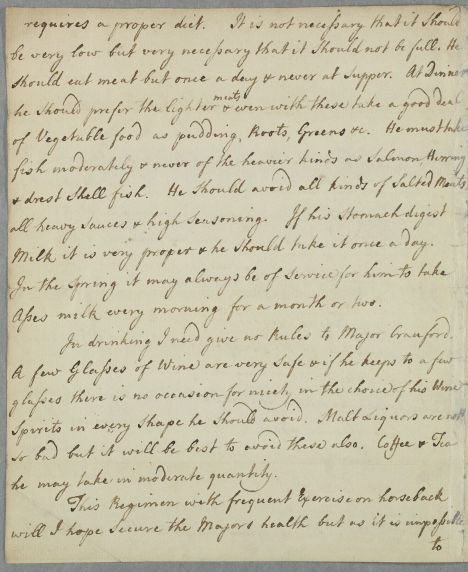 requires a proper diet. It is not necessary that it should
be very low but very necessary that it should not be full. He
should eat meat but once a day & never at supper. At Dinner
he should prefer the lighter meats & even with these take a good deal
of Vegetable food as pudding, Roots, Greens &c. He must take
fish moderately & never of the heavier kinds as Salmon, Herring
& drest Shell fish. He should avoid all kinds of Salted Meats
all heavy sauces & high seasoning. If his stomach digest
Milk it is very proper & he should take it once a day.
In the Spring it may always be of service for him to take
Asses milk every morning for a month or two.
In drinking I need give no Rules to Major Craufurd.
A few Glasses of Wine are very safe & if he keeps to a few
glasses there is no occasion for nicety in the choice of his Wine
Spirits in every shape he should avoid. Malt Liquors are not
so bad but it will be best to avoid these also. Coffee & Tea
he may take in moderate quantity.
This Regimen with frequent Exercise on horseback
will I hope secure the Majors health but as it is impossible
to